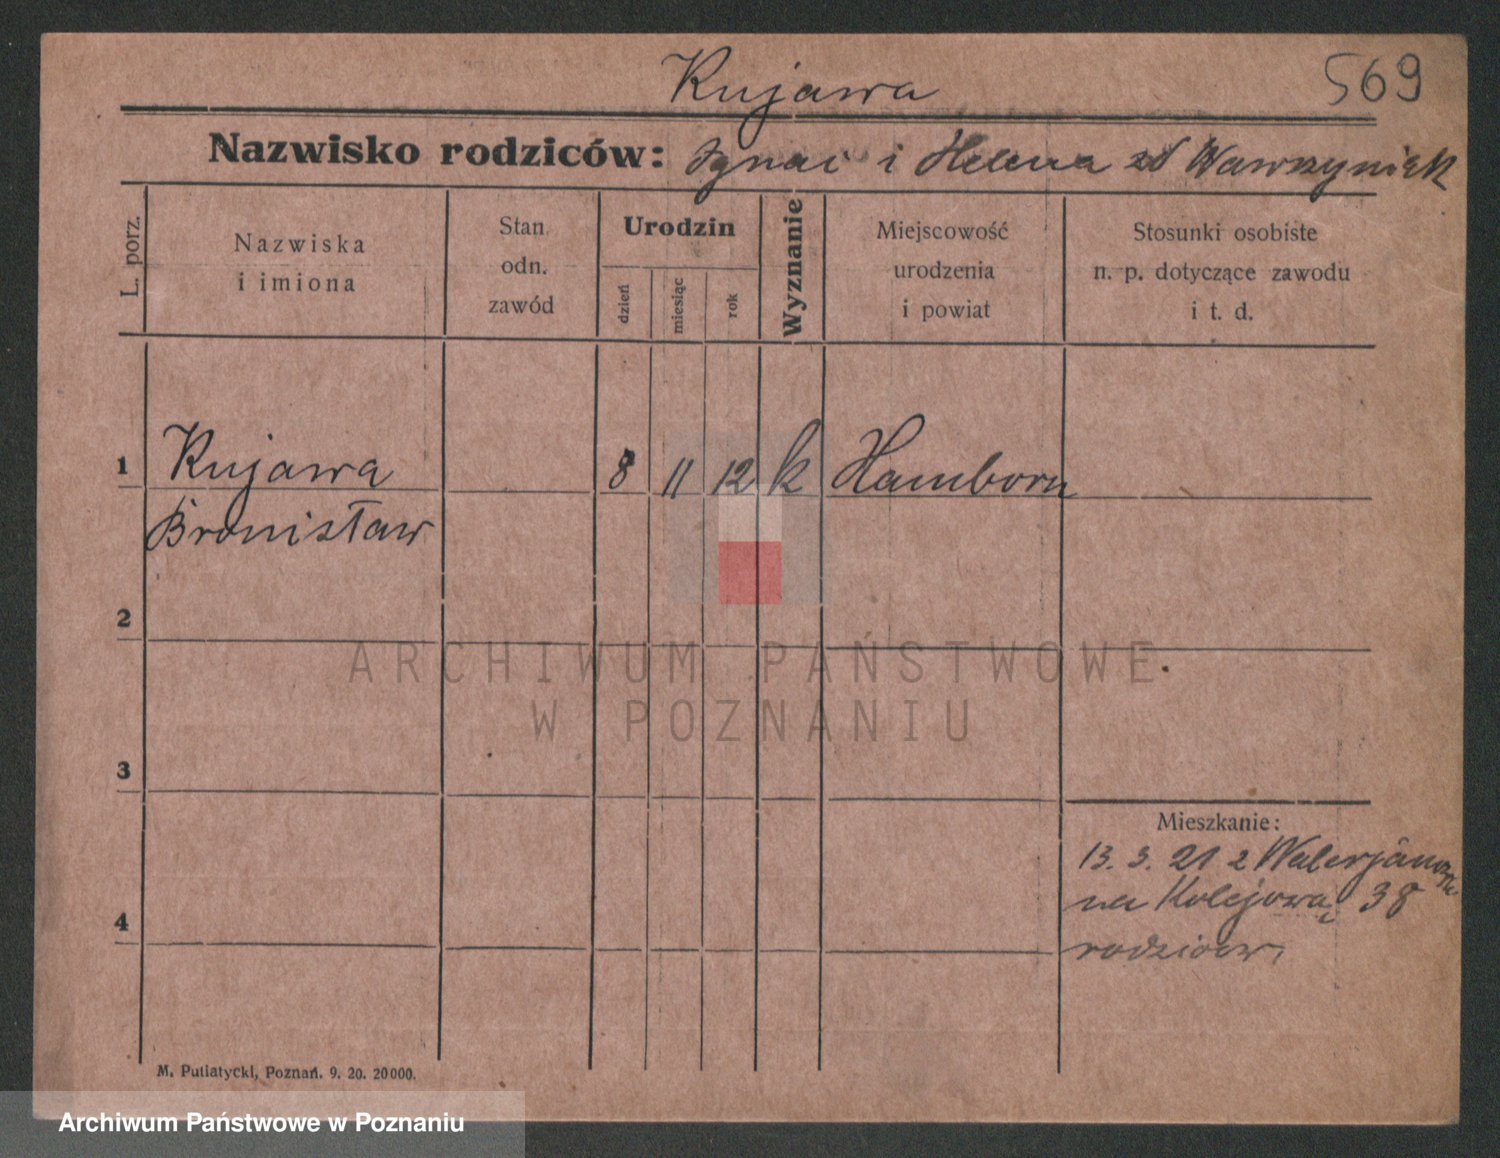 Kujawa
569
Nazwisko rodziców: Ignac i Helena zd Wawrzyniak
L. porz.
Nazwiska
i imiona
Stan
odn.
zawód
Urodzin
dzień
miesiąc
rok
Wyznanie
Miejscowość
urodzenia
i powiat
Stosunki osobiste
n. p. dotyczące zawodu
i t. d.
1
Kujawa
8 11 12 k Hamborn
Bronisław
2
3
4
Mieszkanie:
13. 3. 21 z
na Kolejową 38
rodziców.
M. Putiatycki, Poznań. 9. 20. 20000.
ARCHIWUM PAŃSTWOWE
W POZNANIU
Archiwum Państwowe w Poznaniu